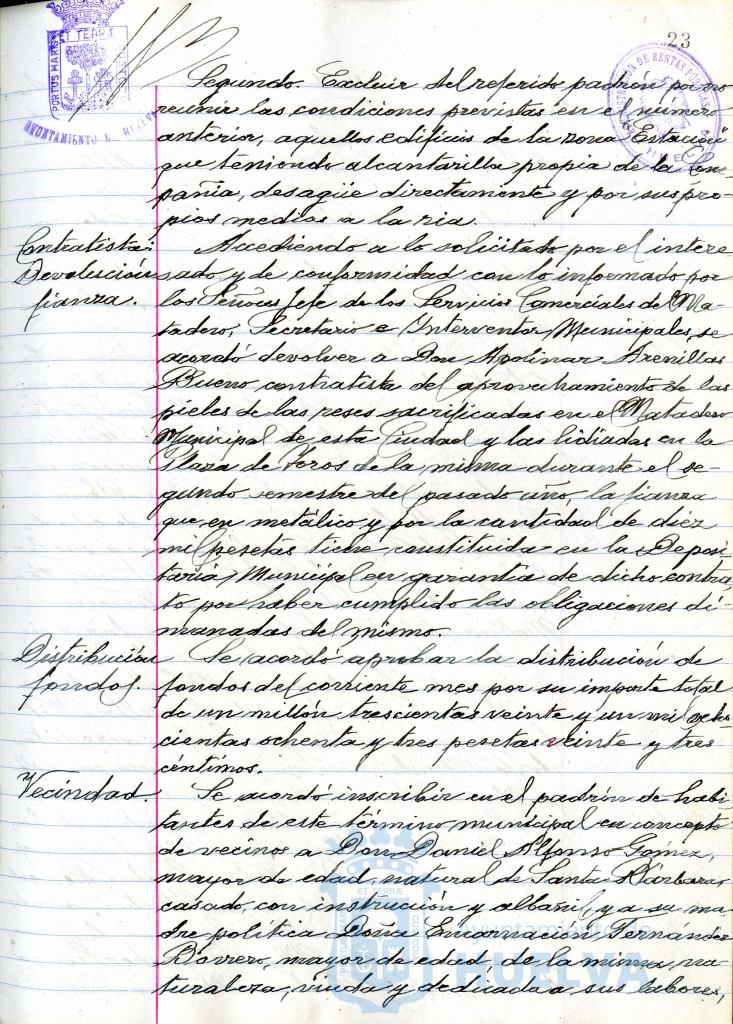 23
PORTUS MARIS ET TERRAE CUSTODIA
AYUNTAMIENTO DE HUELVA
Segundo. Excluir del referido padrón por no
reunir las condiciones previstas en el número
anterior, aquellos edificios de la zona "Estación"
que teniendo alcantarilla propia de la Com-
pañia, desagüe directamente y por sus pro-
pios medios a la ria.
Contratista:
Devolución
fianza.
Accediendo a lo solicitado por el intere-
sado y de conformidad con lo informado por
los Señores Jefe de los Servicios Comerciales del Ma-
tadero, Secretario e Interventor Municipales, se
acordó devolver a Don Apolinar Arenillas
Bueno, contratista del aprovechamiento de las
pieles de las reses sacrificadas en el Matadero
Municipal de esta Ciudad y las lidiadas en la
Plaza de Toros de la misma durante el se-
gundo semestre del pasado año, la fianza
que, en metálico y por la cantidad de diez
mil pesetas tiene constituida en la Deposi-
taria Municipal en garantia de dicho contra-
to por haber cumplido las obligaciones di-
manadas del mismo.
Distribución
fondos.
Se acordó aprobar la distribución de
fondos del corriente mes por su importe total
de un millón trescientas veinte y un mil ocho-
cientas ochenta y tres pesetas veinte y tres
céntimos.
Vecindad.
Se acordó inscribir en el padrón de habi-
tantes de este término municipal en concepto
de vecinos a Don Daniel Alfonso Gómez,
mayor de edad, natural de Santa Barbara,
casado, con instrucción y albañil, y a su ma-
dre política Doña Encarnación Fernández
Borrero, mayor de edad, de la misma na-
turaleza, viuda y dedicada a sus labores,
Ayuntamiento de
HUELVA